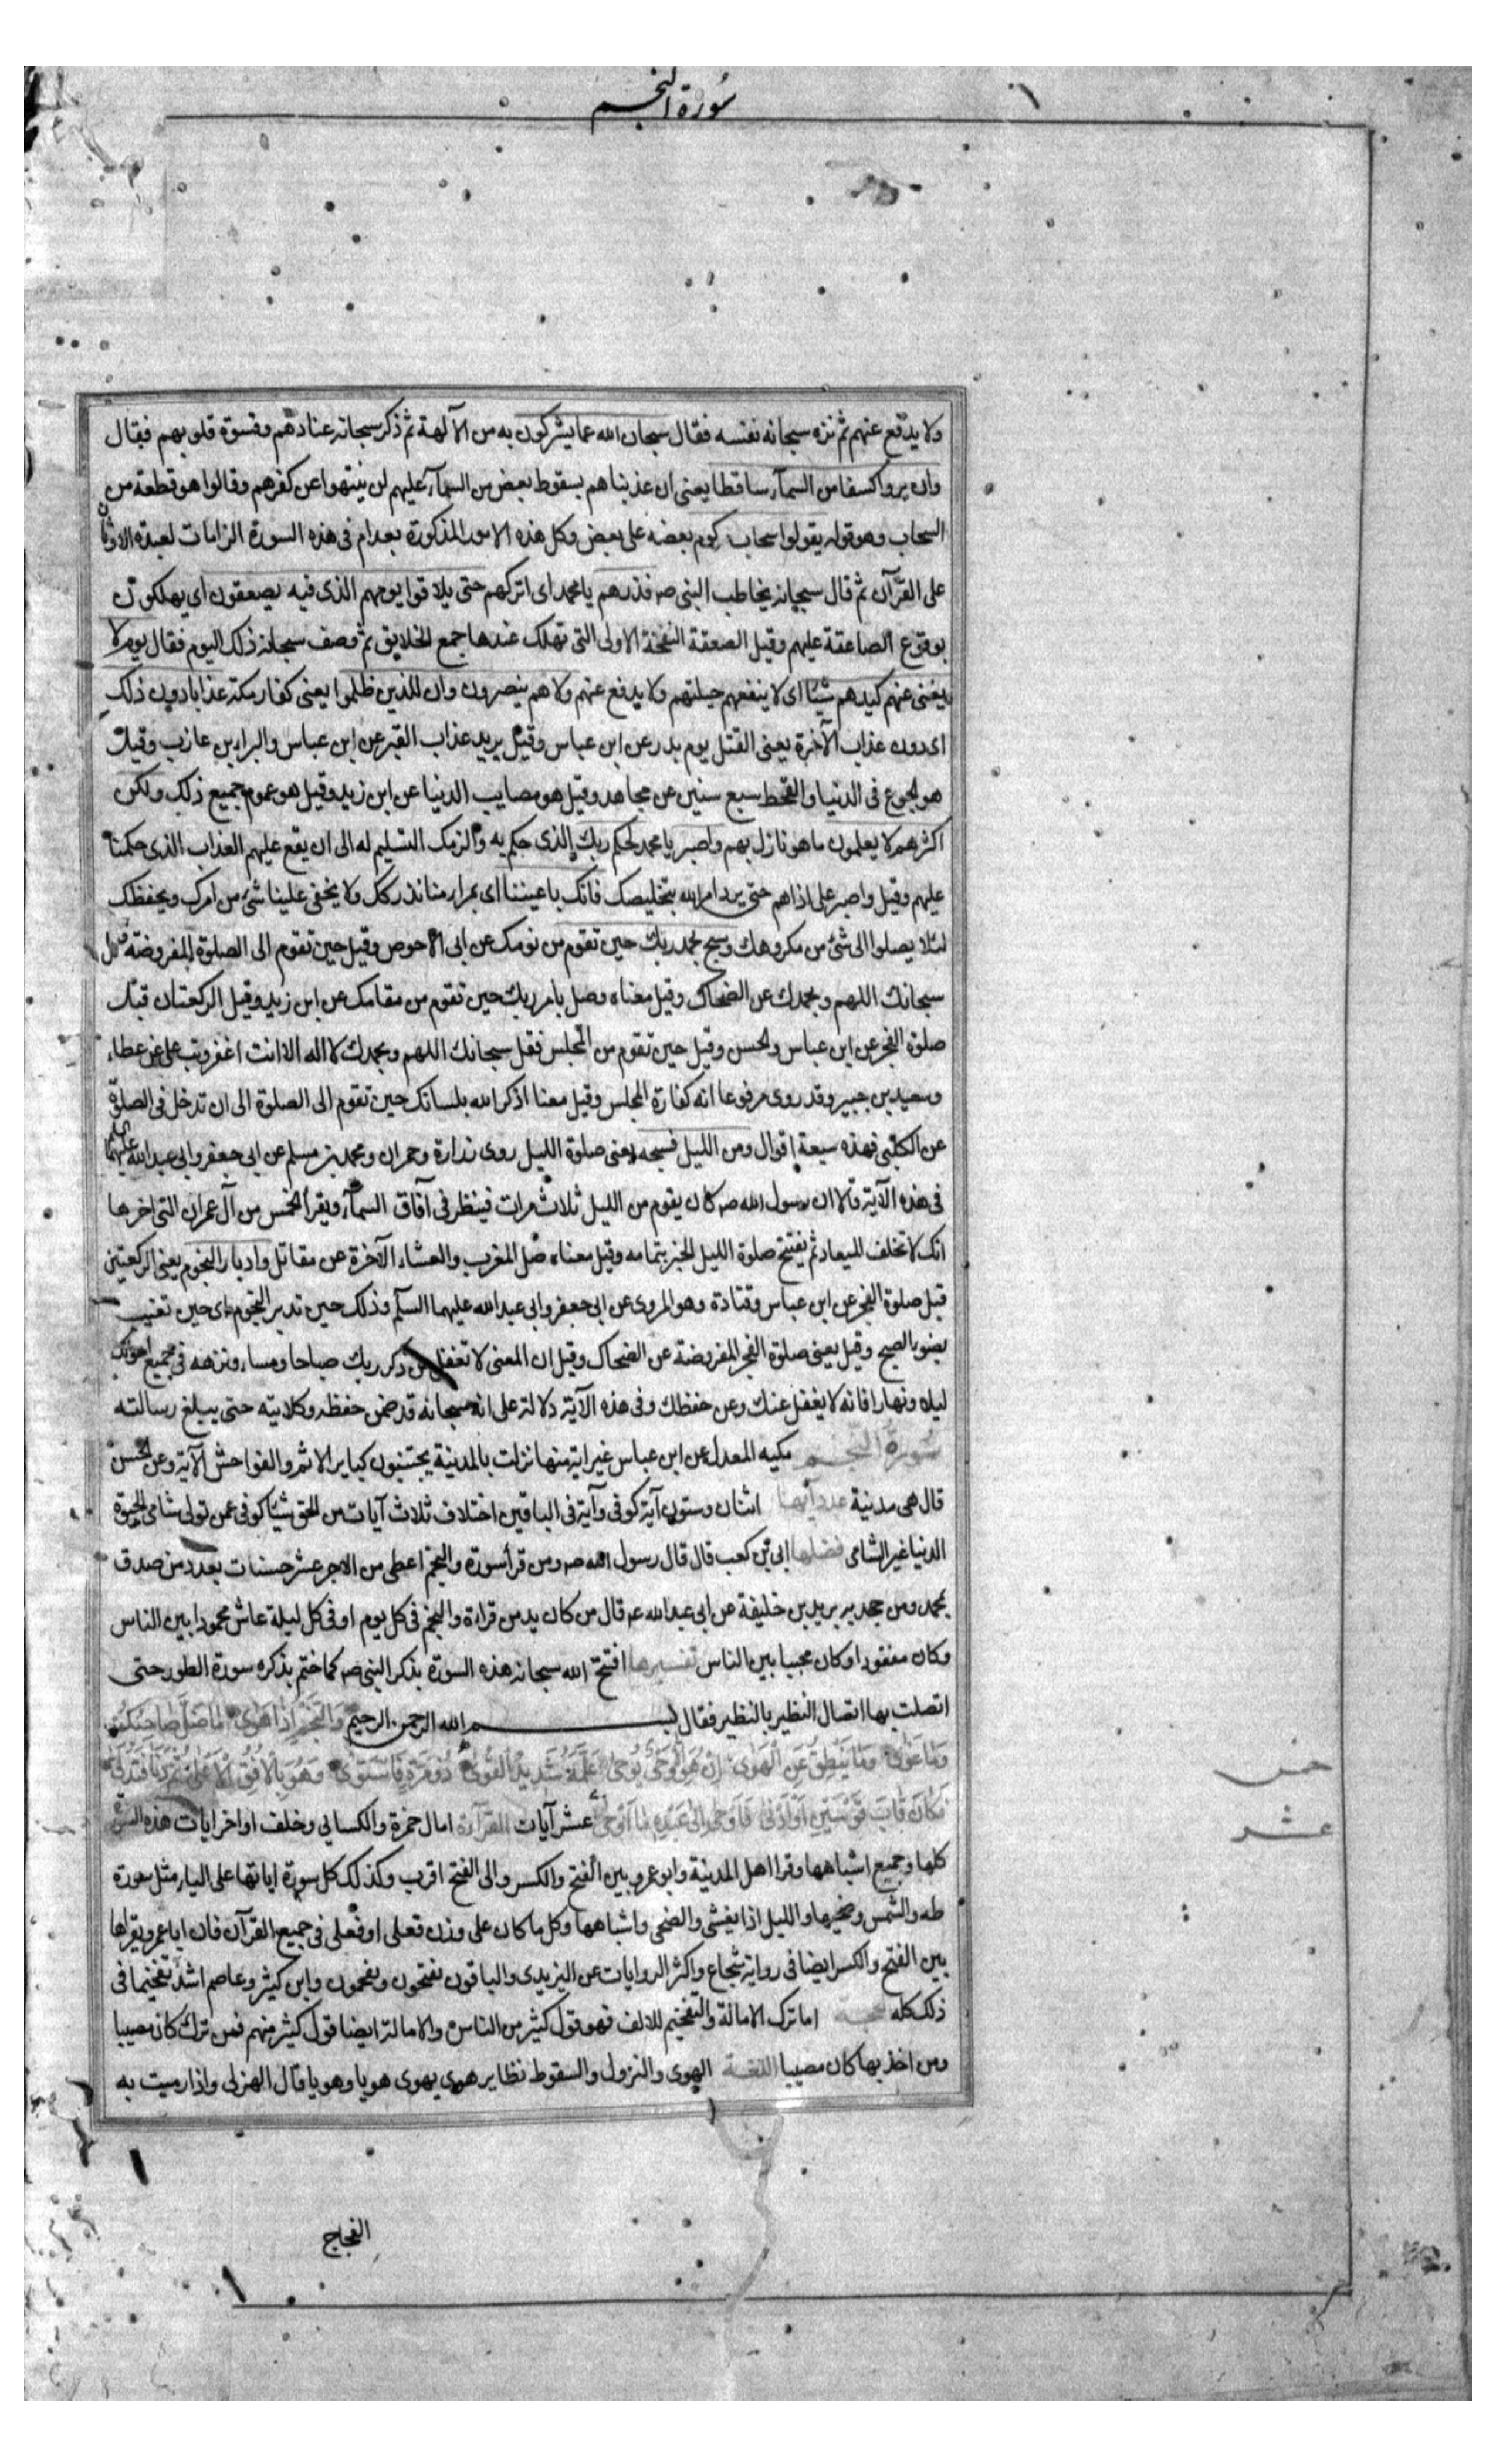 سورة النجم
ولا يدفع عنهم ثم نزه سبحانه نفسه فقال سبحان الله عما يشركون به من الآلهة ثم ذكر سبحانه عنادهم وقسوة قلوبهم فقال
وان يروا كسفا من السمآء ساقطا يعنى ان عذبناهم بسقوط بعض من السمآء عليهم لن ينتهوا عن كفرهم وقالوا هو قطعة من
السحاب وهو قوله يقولوا سحاب مركوم بعضه على بعض وكل هذه الامور المذكورة بعد ام فى هذه السورة الزامات لعبدة الاوثان
على القرآن ثم قال سبحانه يخاطب النبى صـ فذرهم يا محمد اى اتركهم حتى يلاقوا يومهم الذى فيه يصعقون اى يهلكون
بوقوع الصاعقة عليهم وقيل الصعقة النفخة الاولى التى تهلك عندها جمع الخلايق ثم وصف سبحانه ذلك اليوم فقال يوم لا
يغنى عنهم كيدهم شيئا اى لا ينفعهم حيلتهم ولا يدفع عنهم ولا هم ينصرون وان للذين ظلموا يعنى كفار مكة عذابا دون ذلك
اى دون عذاب الآخرة يعنى القتل يوم بدر عن ابن عباس وقيل يريد عذاب القبر عن ابن عباس والبراء بن عازب وقيل
هو الجوع فى الدنيا والقحط سبع سنين عن مجاهد وقيل هو مصايب الدنيا عن ابن زيد وقيل هو عموم جميع ذلك ولكن
اكثرهم لا يعلمون ما هو نازل بهم واصبر يا محمد لحكم ربك الذى حكم به والزمك التسليم له الى ان يقع عليهم العذاب الذى حكمنا
عليهم وقيل واصبر على اذاهم حتى يرد امر الله بتخليصك فانك باعيننا اى بمراء منا ندركك ولا يخفى علينا شئ من امرك ويحفظك
لئلا يصلوا الى شئ من مكروهك وسبح بحمد ربك حين تقوم من نومك عن ابى الاحوص وقيل حين تقوم الى الصلوة المفروضة فقل
سبحانك اللهم وبحمدك عن الضحاك وقيل معناه وصل بامر ربك حين تقوم من مقامك عن ابن زيد وقيل الركعتان قبل
صلوة الفجر عن ابن عباس والحسن وقيل حين تقوم من المجلس فقل سبحانك اللهم وبحمدك لا اله الا انت اغفر وتب على عن عطاء
وسعيد بن جبير وقد روى مرفوعا انه كفارة المجلس وقيل معنا اذكر الله بلسانك حين تقوم الى الصلوة الى ان تدخل فى الصلوة
عن الكلبى فهذه سبعة اقوال ومن الليل فسبحه يعنى صلوة الليل روى زرارة وحمران ومحمد بن مسلم عن ابى جعفر وابى عبد الله عليهما
فى هذه الآية قالا ان رسول الله صـ كان يقوم من الليل ثلاث مرات فينظر فى آفاق السمآء ويقرأ الخمس من آل عمران التى اخرها
انك لا تخلف الميعاد ثم يفتتح صلوة الليل الخبر بتمامه وقيل معناه صل المغرب والعشاء الآخرة عن مقاتل وادبار النجوم يعنى الركعتين
قبل صلوة الفجر عن ابن عباس وقتادة وهو المروى عن ابى جعفر وابى عبد الله عليهما السلم وذلك حين تدبر النجوم اى حين تغيب
بضوء الصبح وقيل يعنى صلوة الفجر المفروضة عن الضحاك وقيل ان المعنى لا تغفل عن ذكر ربك صباحا ومساء ونزهه فى جميع احوالك
ليلا ونهارا فانه لا يغفل عنك وعن حفظك وفى هذه الآية دلالة على انه سبحانه قد ضمن حفظه وكلايته حتى يبلغ رسالته
سورة النجم مكيه المعدل عن ابن عباس غير اية منها نزلت بالمدينة يجتنبون كباير الاثم والفواحش الآية وعن الحسن
قال هى مدنية عدد آيها اثنان وستون آية كوفى وآية فى الباقين اختلاف ثلاث آيات من الحق شيئا كوفى عمن تولى شامى الحيوة
الدنيا غير الشامى فضلها ابى بن كعب قال قال رسول الله صـ ومن قرأ سورة والنجم اعطى من الاجر عشر حسنات بعدد من صدق
بمحمد ومن جحد به بريد بن خليفة عن ابى عبد الله عـ قال من كان يدمن قراءة والنجم فى كل يوم او فى كل ليلة عاش محمودا بين الناس
وكان مغفورا وكان محببا بين الناس تفسيرها افتتح الله سبحانه هذه السورة بذكر النبى صـ كما ختم بذكره سورة الطور حتى
اتصلت بها اتصال النظير بالنظير فقال بسم الله الرحمن الرحيم والنجم اذا هوى ما ضل صاحبكم
وما غوى وما ينطق عن الهوى ان هو الا وحى يوحى علمه شديد القوى ذو مرة فاستوى وهو بالافق الاعلى ثم دنا فتدلى
فكان قاب قوسين او ادنى فاوحى الى عبده ما اوحى عشر آيات القرآءة امال حمزة والكسائي وخلف اواخر ايات هذه السورة
كلها وجميع اشباهها وقرا اهل المدينة وابو عمرو بين الفتح والكسر والى الفتح اقرب وكذلك كل سورة اياتها على الياء مثل سورة
طه والشمس وضحيها والليل اذا يغشى والضحى واشباهها وكل ما كان على وزن فعلى او فعلى فى جميع القرآن فان ابا عمرو يقراها
بين الفتح والكسر ايضا فى رواية شجاع واكثر الروايات عن اليزيدى والباقون يفتحون ويفخمون وابن كثير وعاصم اشد تفخيما فى
ذلك كله الحجة اما ترك الامالة والتفخيم للالف فهو قول كثير من الناس والامالة ايضا قول كثير منهم فمن ترك كان مصيبا
ومن اخذ بها كان مصيبا اللغة الهوى والنزول والسقوط نظاير هوى يهوى هويا وهويا قال الهزلى واذا رميت به
خمس
عشر
الفجاج